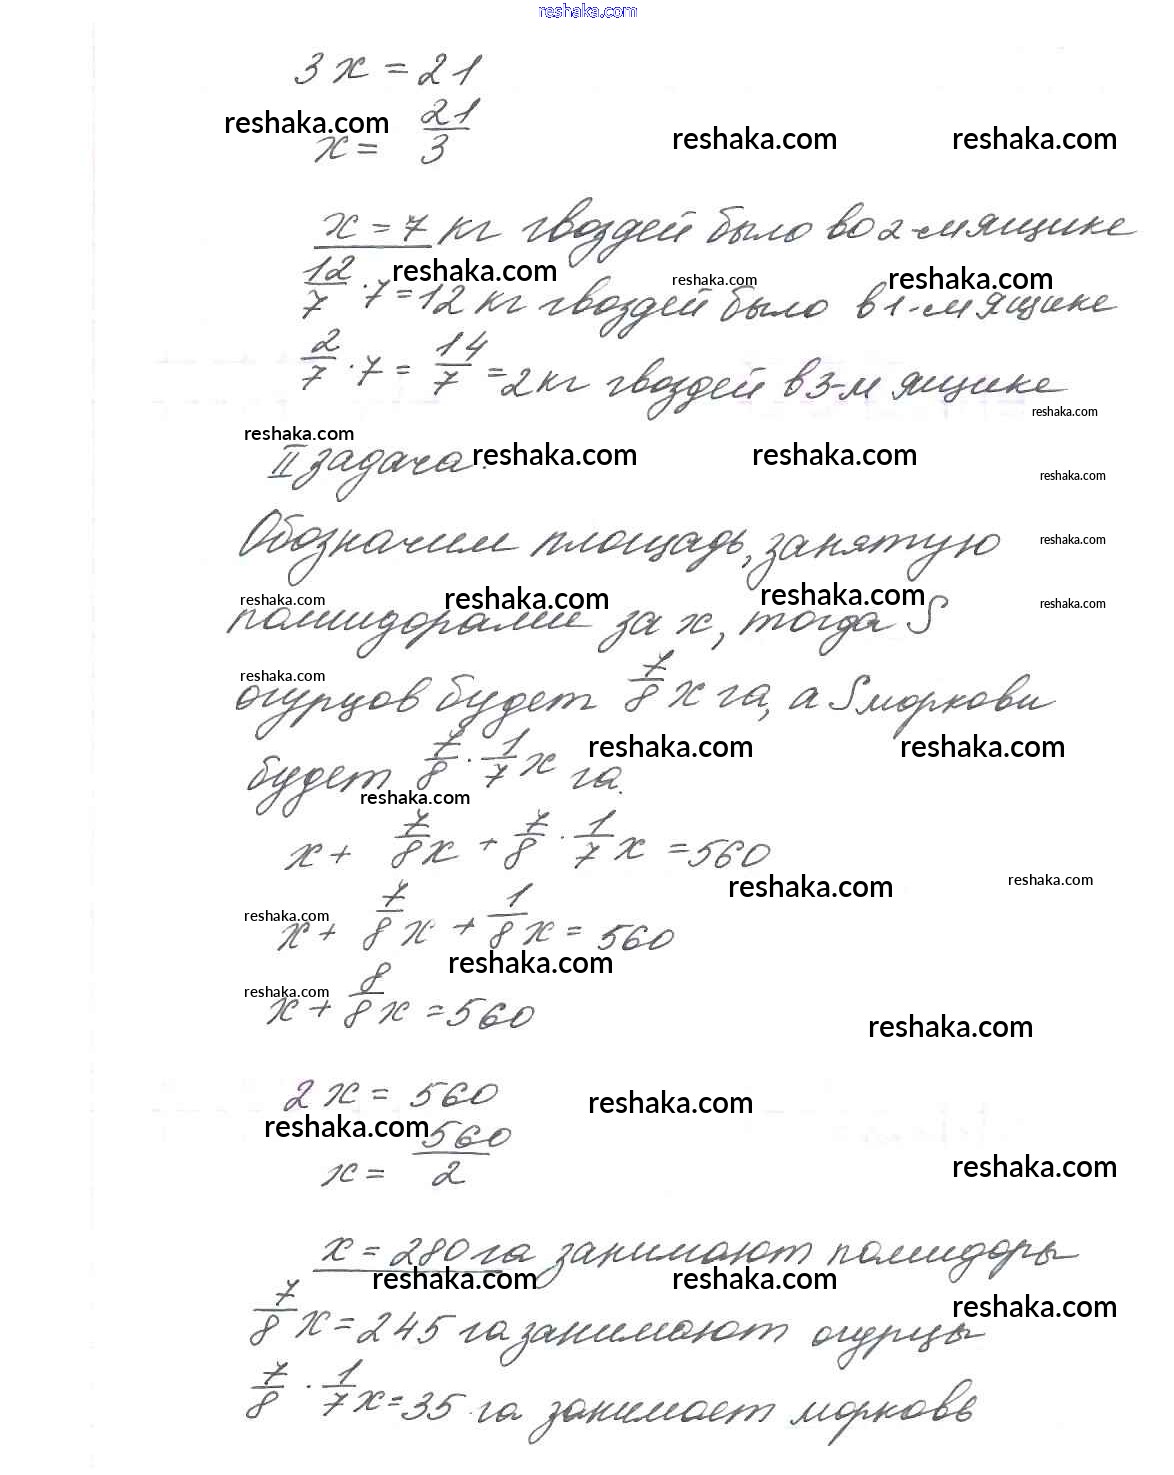 reshaka.com
3x = 21
reshaka.com
x = 21/3
reshaka.com reshaka.com
x = 7 кг гвоздей было во 2-м ящике
reshaka.com reshaka.com reshaka.com
12/7 · 7 = 12 кг гвоздей было в 1-м ящике
2/7 · 7 = 14/7 = 2 кг гвоздей в 3-м ящике
reshaka.com
reshaka.com
II задача.
reshaka.com reshaka.com
reshaka.com
Обозначим площадь, занятую
reshaka.com
reshaka.com reshaka.com reshaka.com reshaka.com
помидорами за x, тогда S
reshaka.com
огурцов будет 7/8 x га, а S моркови
reshaka.com reshaka.com
будет 7/8 · 1/7 x га.
reshaka.com
x + 7/8 x + 7/8 · 1/7 x = 560
reshaka.com reshaka.com
reshaka.com
x + 7/8 x + 1/8 x = 560
reshaka.com
reshaka.com
x + 8/8 x = 560
reshaka.com
2x = 560
reshaka.com
reshaka.com
x = 560/2
reshaka.com
x = 280 га занимают помидоры
reshaka.com reshaka.com
reshaka.com
7/8 x = 245 га занимают огурцы
7/8 · 1/7 x = 35 га занимает морковь